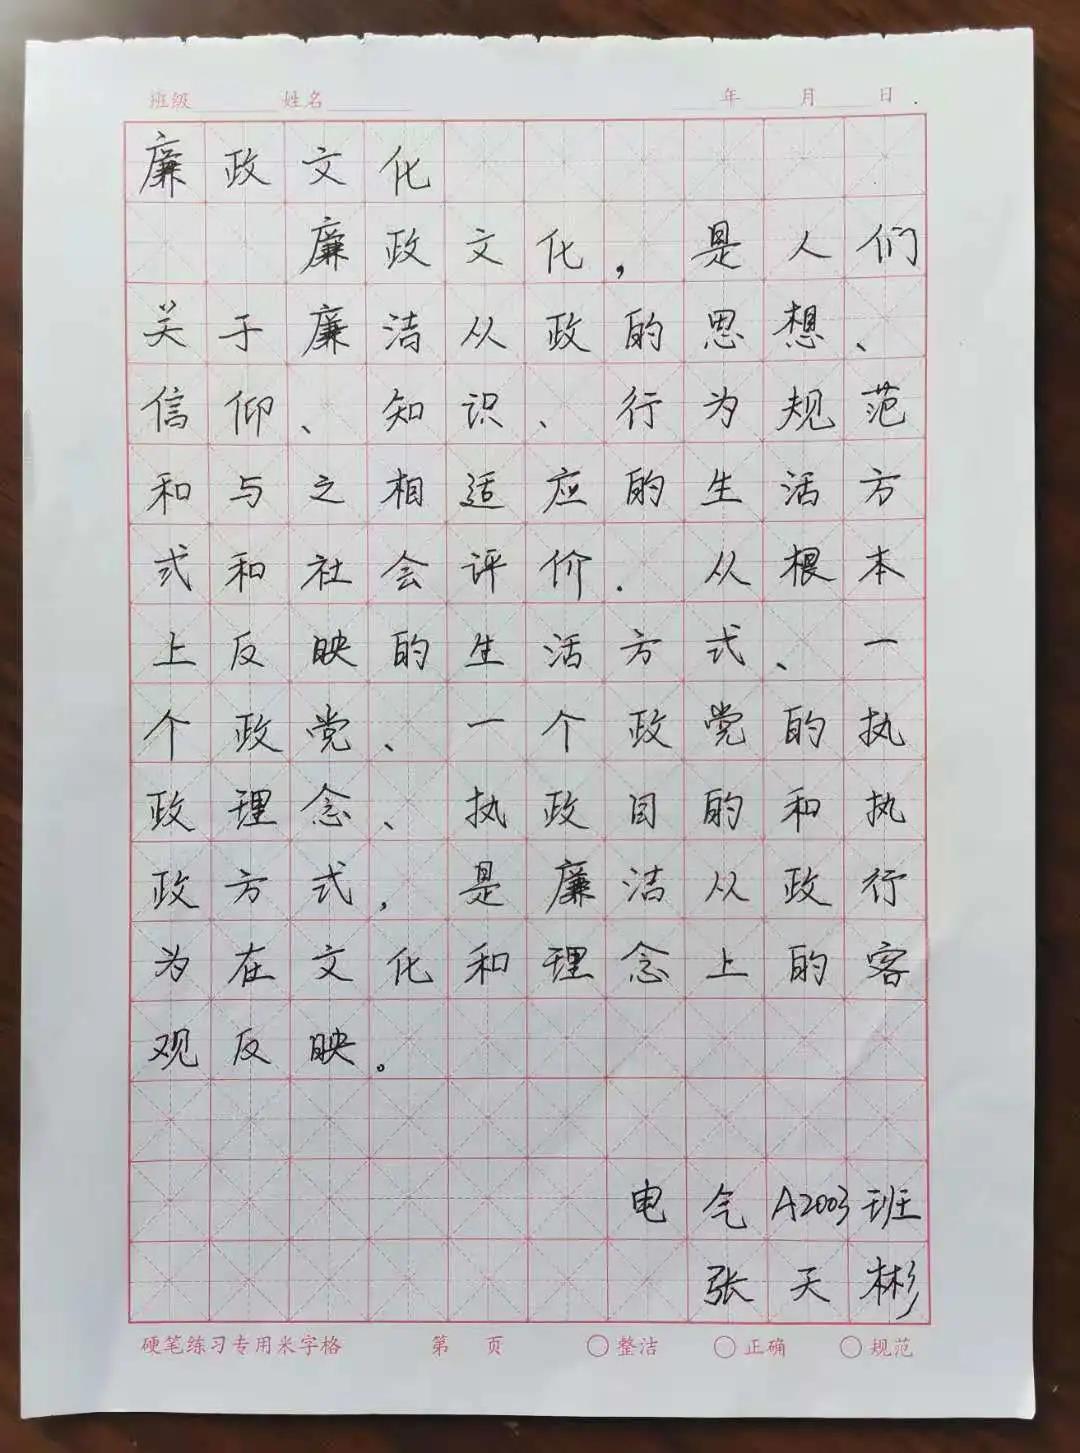 班级 姓名 年 月 日
廉政文化
廉政文化，是人们
关于廉洁从政的思想、
信仰、知识、行为规范
和与之相适应的生活方
式和社会评价.从根本
上反映的生活方式、一
个政党、一个政党的执
政理念、执政目的和执
政方式，是廉洁从政行
为在文化和理念上的客
观反映。
电气A2003班
张天彬
硬笔练习专用米字格 第 页 整洁 正确 规范